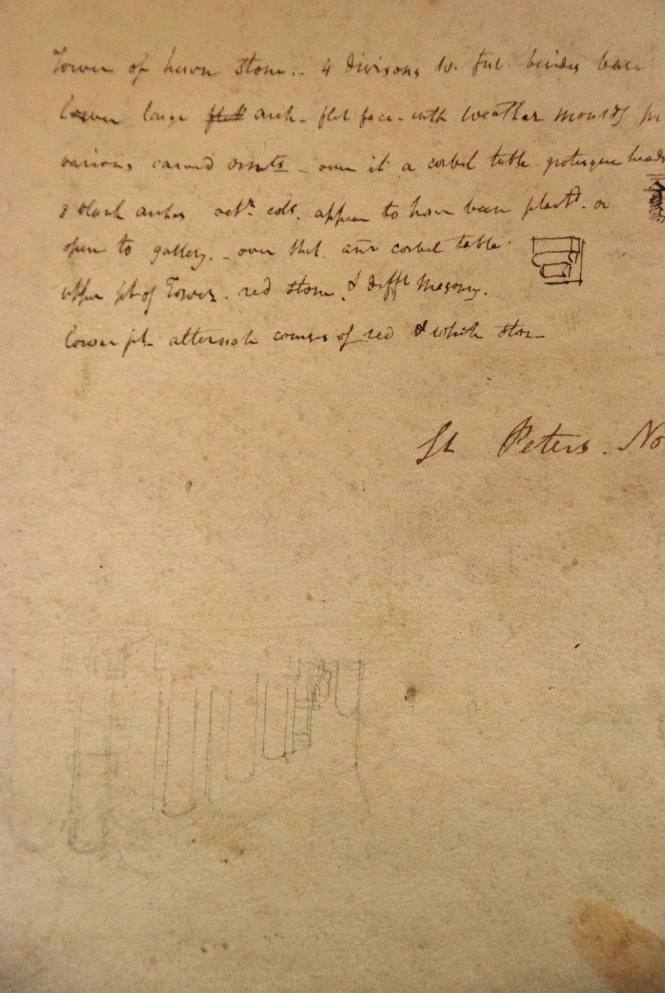 Tower of hewn stone. - 4 divisons besides base
lower large arch - flat face - with weather mouldg
various carved ornts - over it a corbel table grotesque heads
8 blank arches octn cols. appear to have been plastd. or
open to gallery. - over that anr corbel table.
upper pt of Tower. red stone, & difft Masonry.
lower pt - alternate courses of red & white stone
St Peters. No